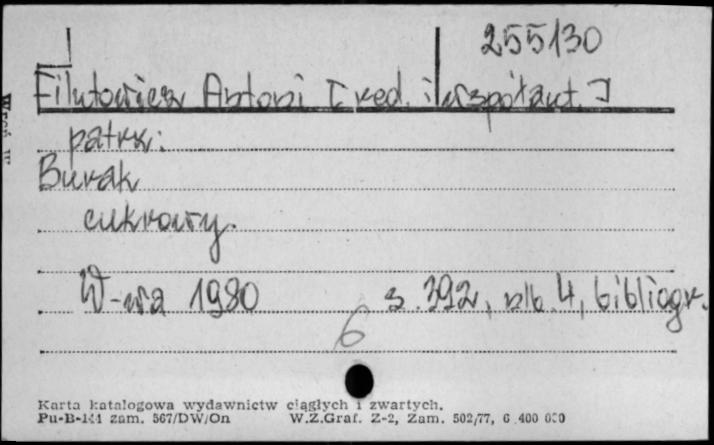 255130
Filutowicz Antoni [red. i współaut.]
patrz:
Burak
cukrowy.
W-wa 1980 s. 392, nlb. 4, bibliogr.
6
Karta katalogowa wydawnictw ciągłych i zwartych.
Pu-B-141 zam. 567/DW/On W.Z.Graf. Z-2, Zam. 502/77, 6 400 000